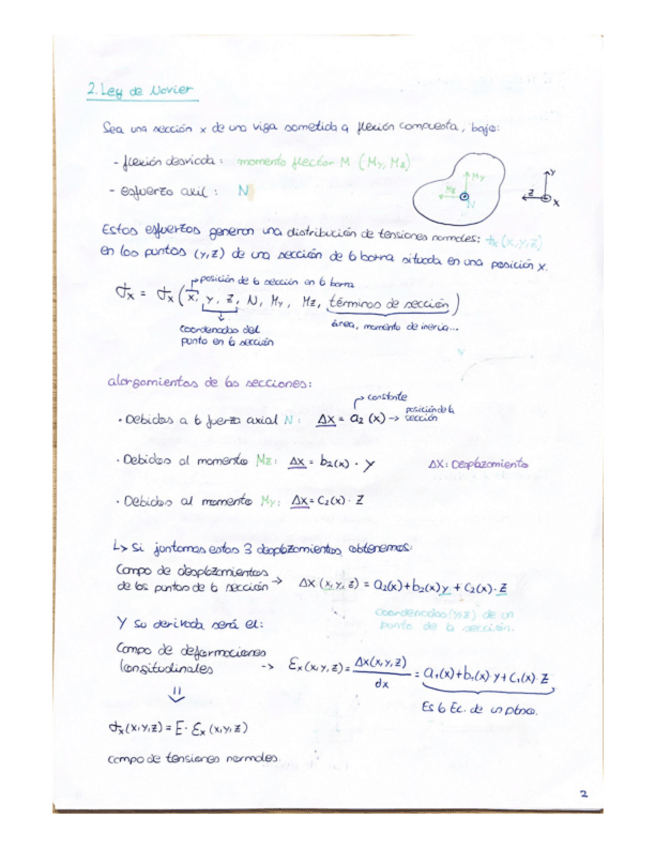 2. Ley de Navier
Sea una sección x de una viga sometida a flexión compuesta, bajo:
- flexión desviada: momento flector M (My, Mz)
- esfuerzo axil: N
My
Mz
N
Y
Z
X
Estos esfuerzos generan una distribución de tensiones normales: σx (x,y,z)
en los puntos (y,z) de una sección de la barra situada en una posición x.
posición de la sección en la barra
σx = σx (x, y, z, N, My, Mz, términos de sección)
coordenadas del
punto en la sección
área, momento de inercia...
alargamientos de las secciones:
→ constante
· Debidos a la fuerza axial N: Δx = a2 (x) → posición de la sección
· Debidos al momento Mz: Δx = b2(x) · y
Δx: Desplazamiento
· Debidos al momento My: Δx = C2(x) · z
↳ Si juntamos estos 3 desplazamientos obtenemos:
Campo de desplazamientos
de los puntos de la sección → Δx (x,y,z) = a2(x)+b2(x)y + C2(x)·z
coordenadas (y,z) de un
punto de la sección.
Y su derivada será el:
Campo de deformaciones
longitudinales → Ɛx (x,y,z) = Δx(x,y,z) / dx = a1(x)+b1(x)·y+C1(x)·z
Es la Ec. de un plano.
σx (x,y,z) = E · Ɛx (x,y,z)
campo de tensiones normales.
2